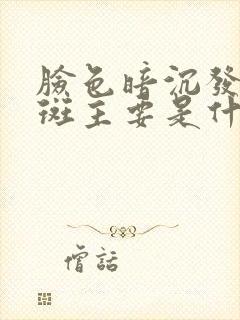 臉色暗沉發
斑主要是什
僧話